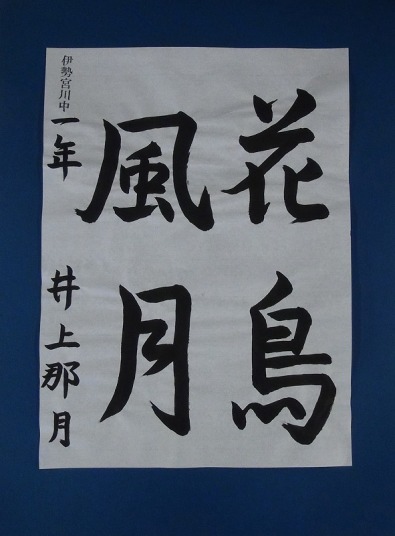 花鳥
風月
伊勢宮川中
一年 井上那月